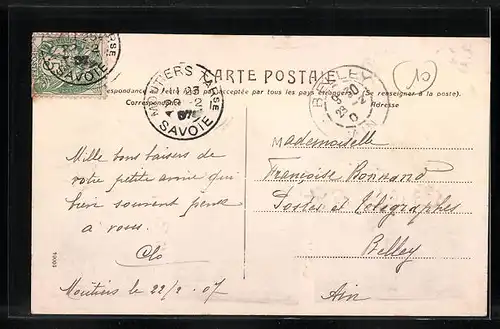 CARTE POSTALE
Correspondance au recto n'est pas acceptée par tous les pays étrangers (Se renseigner à la poste).
Correspondance
Adresse
MOUTIERS TARSE
SAVOIE
BELLEY
AIN
10
Mademoiselle
Françoise Bonnand
Postes et Télégraphes
Belley
Ain
Mille bons baisers de
votre petite amie qui
bien souvent pense
à vous.
Clo
Moutiers le 22/2. 07